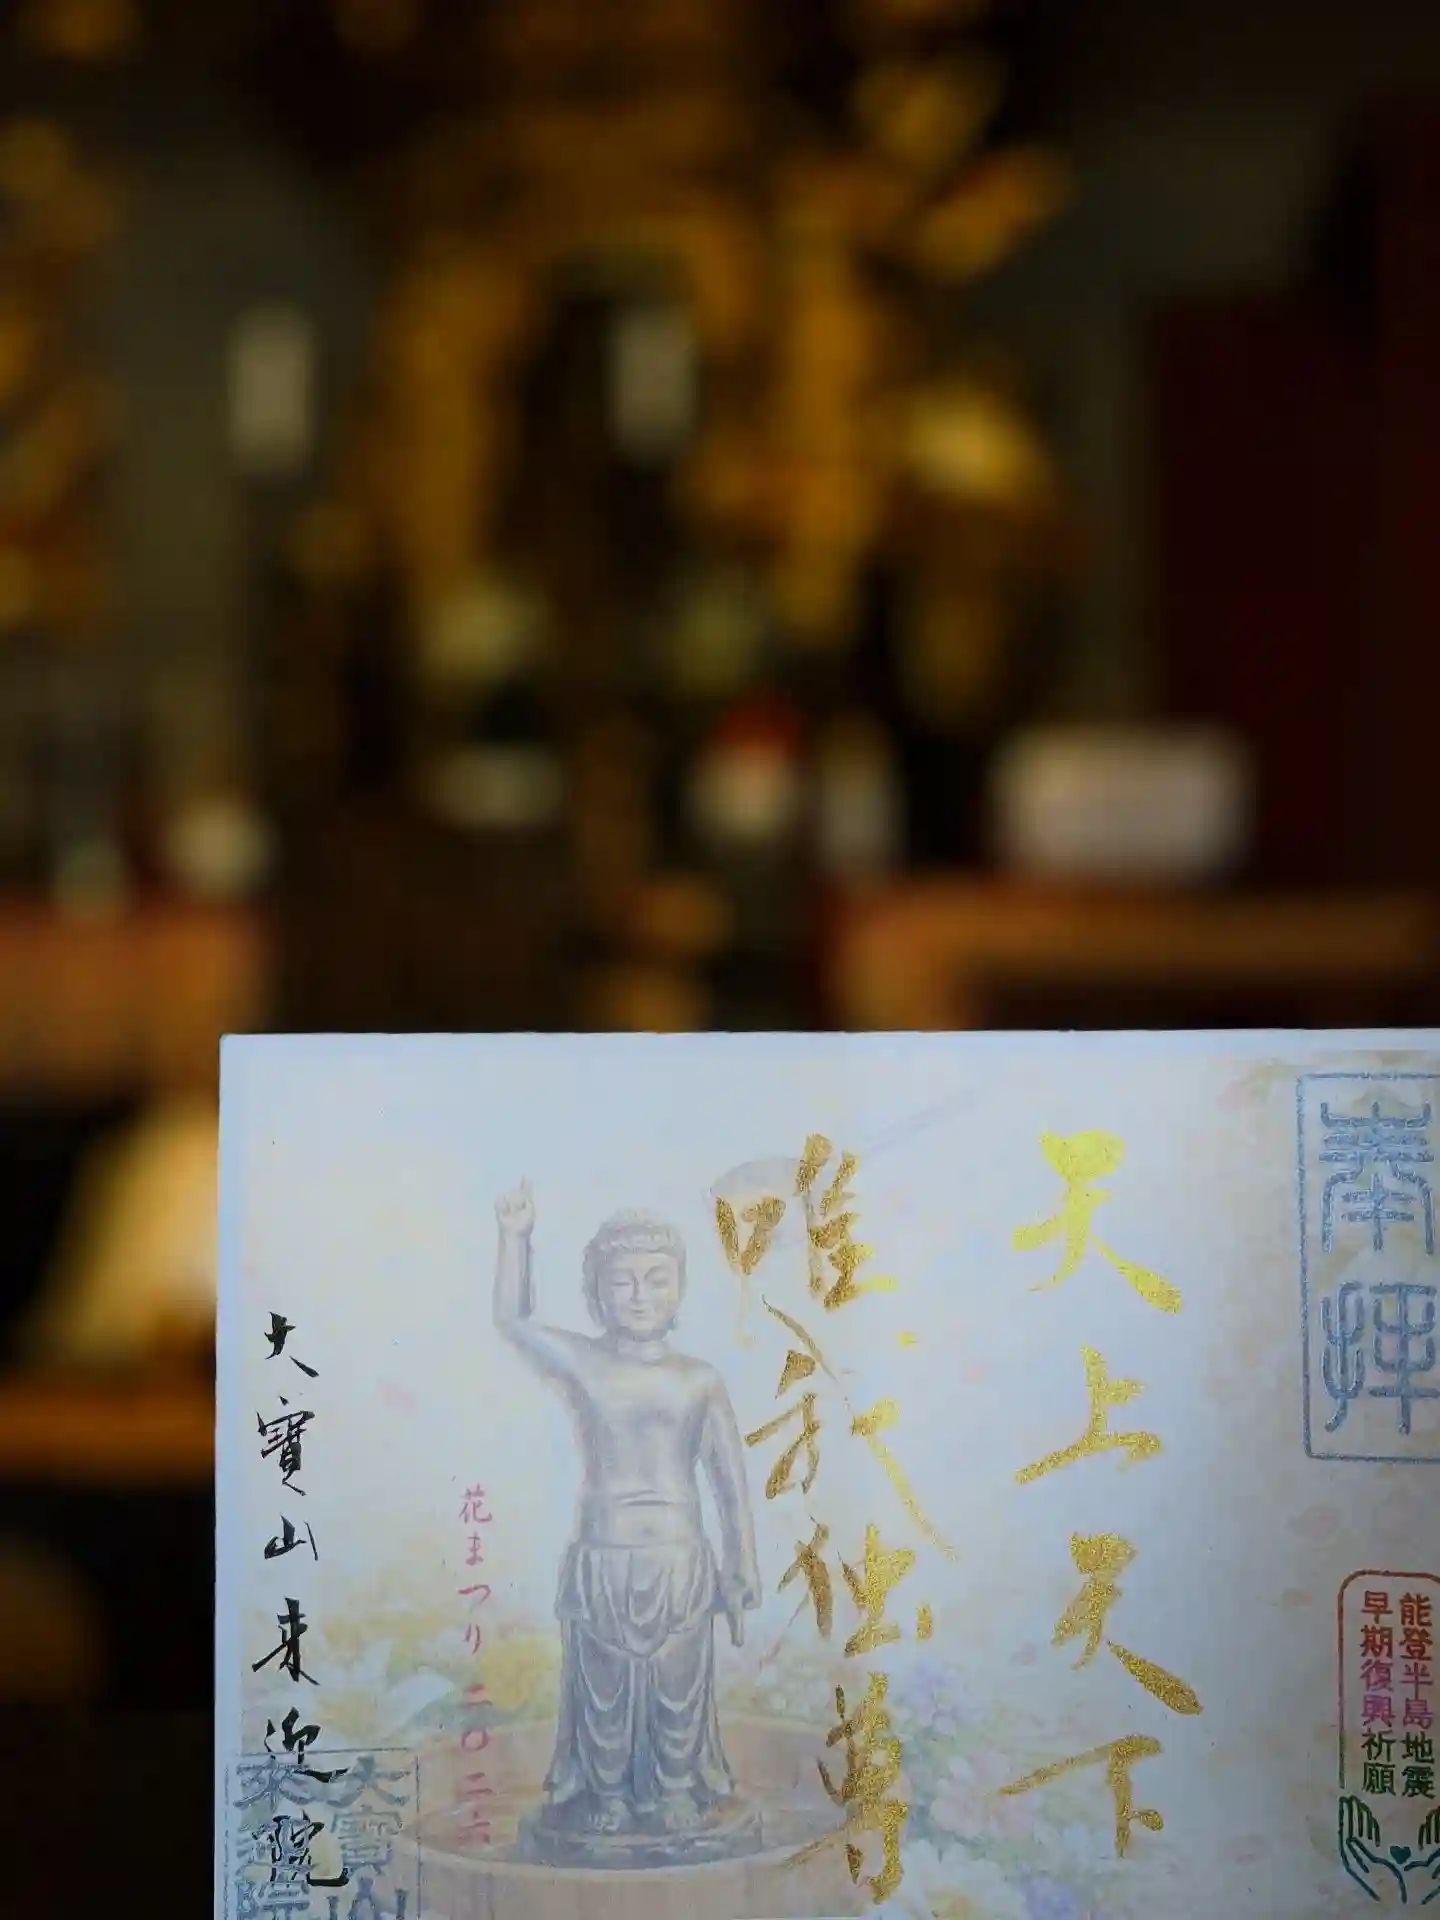 奉拝
能登半島地震
早期復興祈願
天上天下
唯我独尊
花まつり二〇二六
大寳山来迎院
大寳山
来迎院